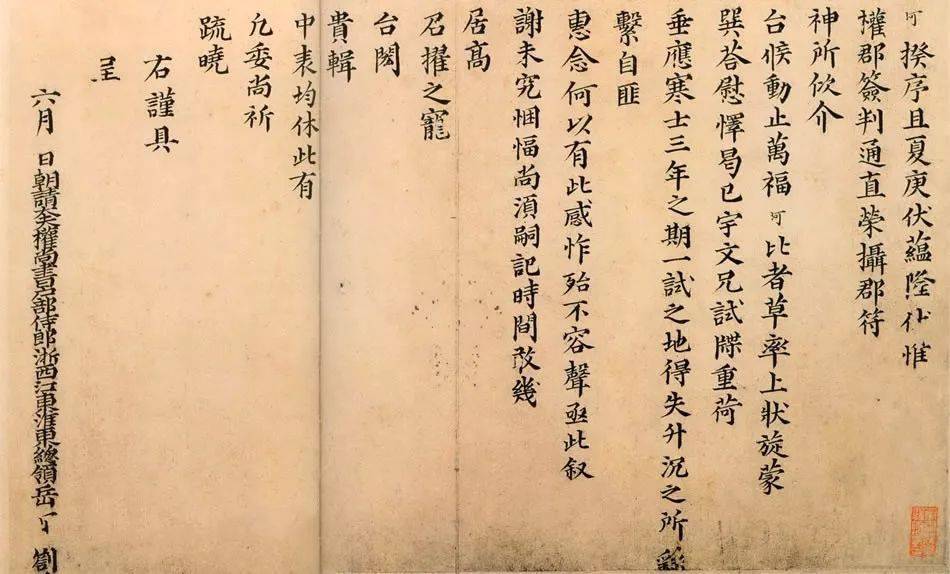 可 揆序且夏庚伏蘊隆惟
權郡簽判通直榮攝郡符
神所攸介
台候動止萬福 可 比者草率上狀旋蒙
巽荅慰懌曷已宇文兄試牒重荷
垂應寒士三年之期一試之地得失升沉之所
繫自匪
惠念何以有此感怍殆不容聲亟此叙
謝未究悃愊尚湏嗣記時間敢幾
居高
召擢之寵
台
貴輯
中表均休此有
凢委尚祈
疏曉
右謹具
呈
六月 日朝請權尚書戶部侍郎浙西江東淮東總領岳 劄